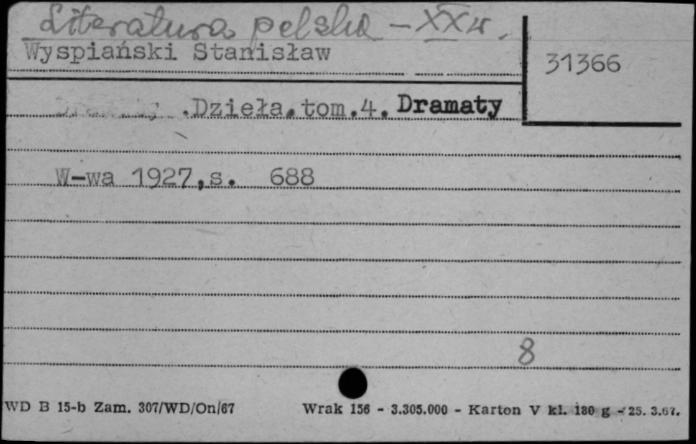 Literatura polska - XX w.
Wyspiański Stanisław
31366
.Dzieła.tom.4. Dramaty
W-wa 1927,s. 688
8
WD B 15-b Zam. 307/WD/On/67 Wrak 156 - 3.305.000 - Karton V kl. 180 g - 25. 3.67.